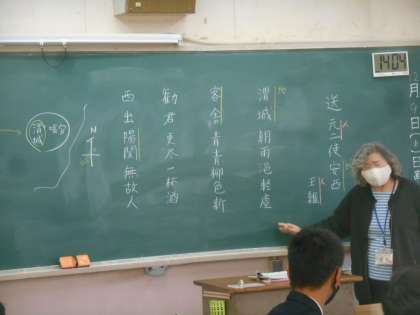 14:04
月 日(土)日直
送元二使安西
王維
渭城朝雨浥軽塵
客舎青青柳色新
勧君更尽一杯酒
西出陽関無故人
N
渭城